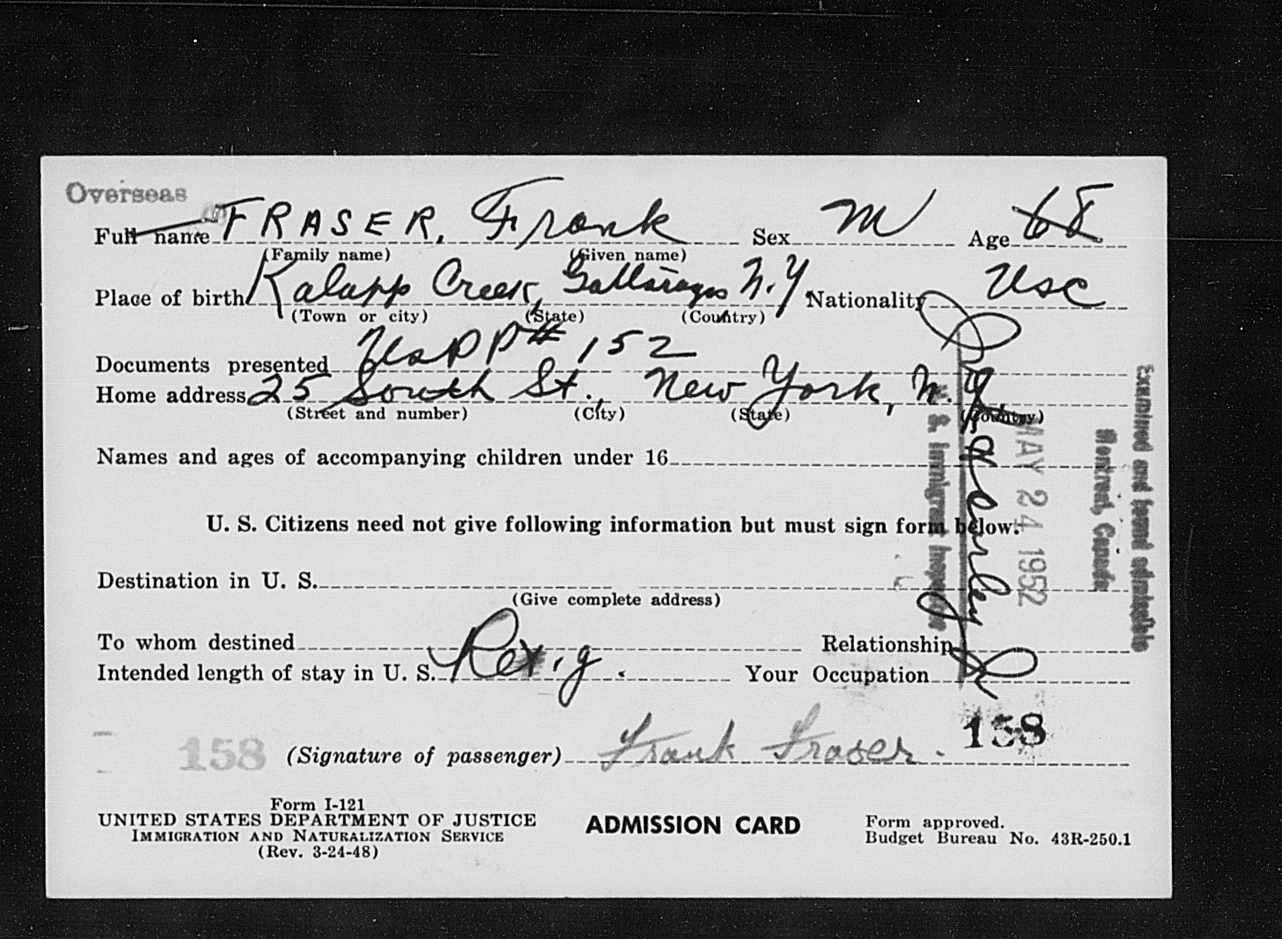 Overseas
Full name FRASER, Frank Sex M Age 68
(Family name) (Given name)
Place of birth Kalapp Creek, N.Y Nationality USC
(Town or city) (State) (Country)
Documents presented US PP# 152
Home address 25 South St., New York, N.Y.
(Street and number) (City) (State) (Country)
Names and ages of accompanying children under 16
U. S. Citizens need not give following information but must sign form below:
Destination in U. S.
(Give complete address)
To whom destined Relationship
Intended length of stay in U. S. Your Occupation
158 (Signature of passenger) Frank Fraser. 158
Form I-121
UNITED STATES DEPARTMENT OF JUSTICE
IMMIGRATION AND NATURALIZATION SERVICE
(Rev. 3-24-48)
ADMISSION CARD
Form approved.
Budget Bureau No. 43R-250.1
Examined and found admissible
Montreal, Canada
MAY 24 1952
U. S. Immigrant Inspector